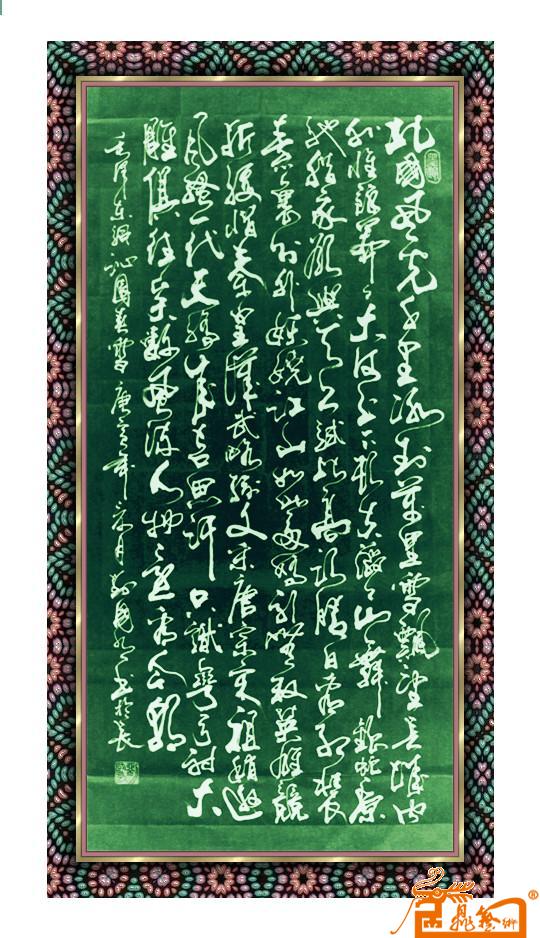 北國風光千里冰封萬里雪飄望長城內
外惟餘莽莽大河上下頓失滔滔山舞銀蛇原
馳蠟象欲與天公試比高須晴日看紅裝
素裹分外妖嬈江山如此多嬌引無數英雄競
折腰惜秦皇漢武略輸文采唐宗宋祖稍遜
風騷一代天驕成吉思汗只識彎弓射大
雕俱往矣數風流人物還看今朝
毛澤東詞沁園春雪庚寅年 月 國 書於長